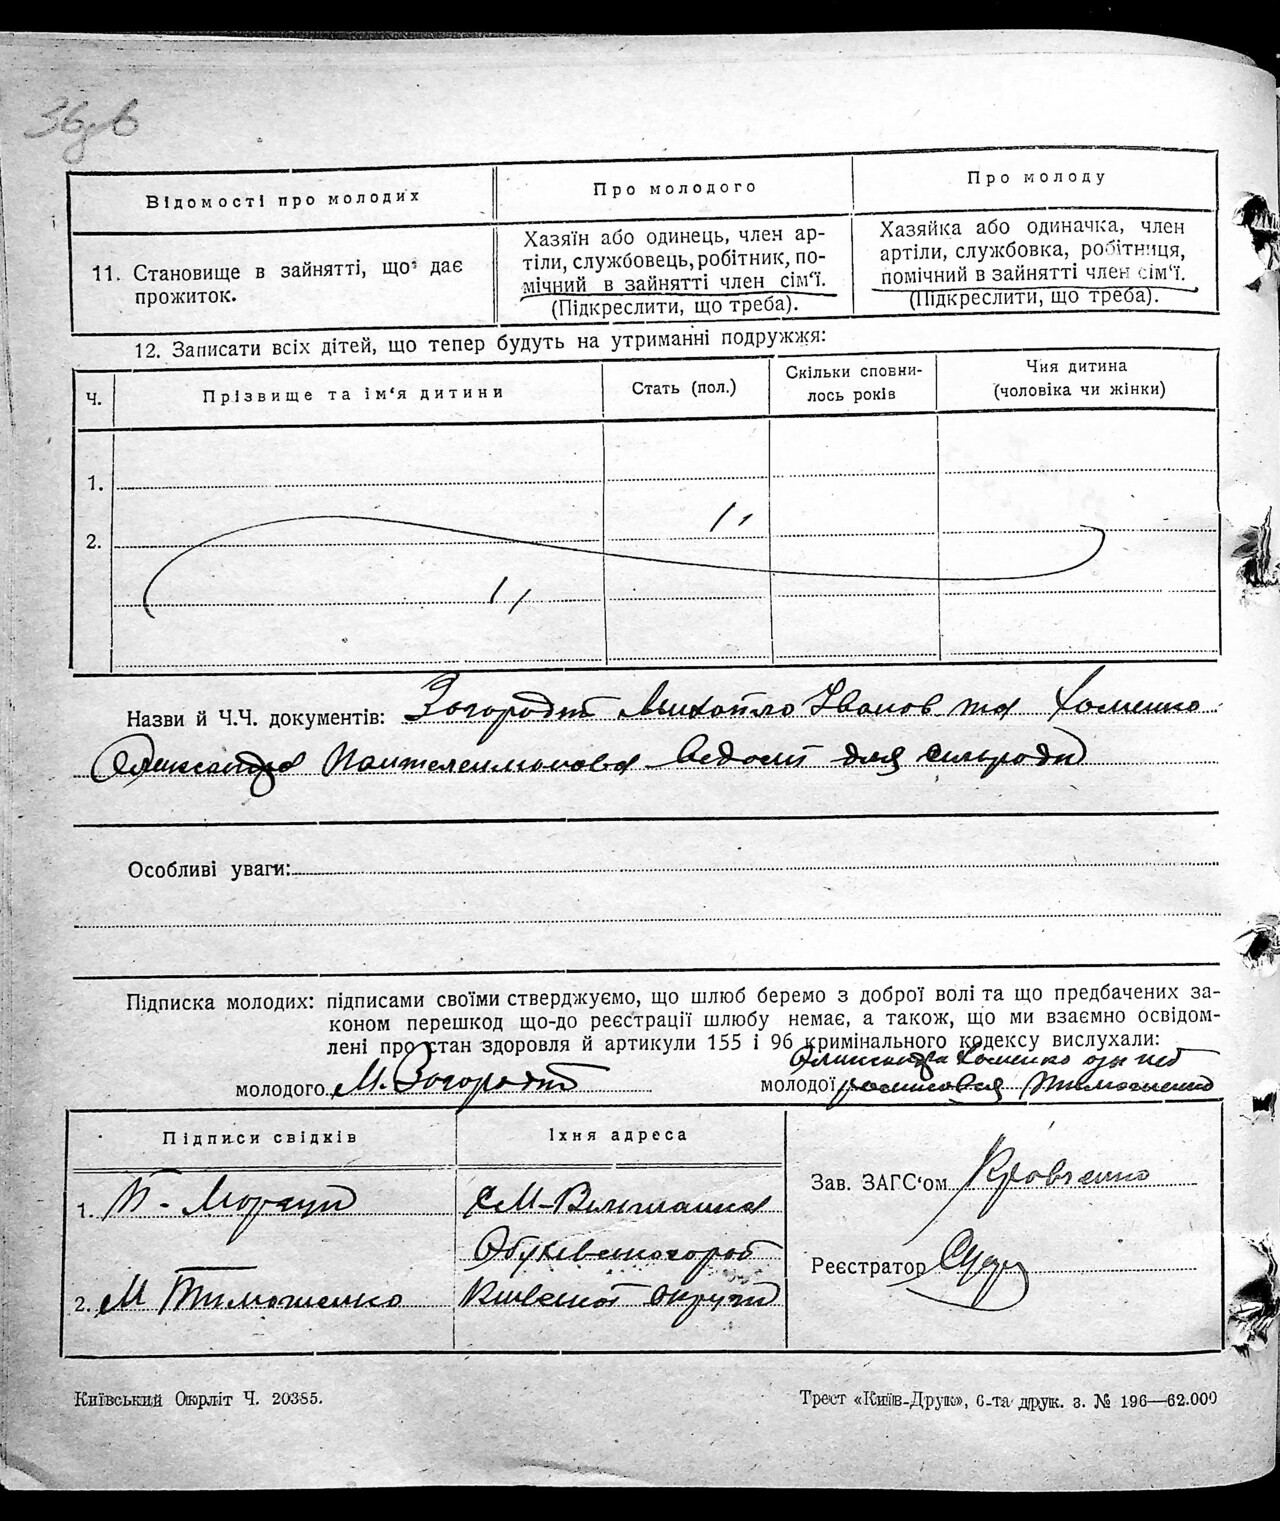 Відомості про молодих
Про молодого
Про молоду
11. Становище в зайнятті, що дає
прожиток.
Хазяїн або одинець, член ар-
тіли, службовець, робітник, по-
мічний в зайнятті член сім'ї.
(Підкреслити, що треба).
Хазяйка або одиначка, член
артіли, службовка, робітниця,
помічний в зайнятті член сім'ї.
(Підкреслити, що треба).
12. Записати всіх дітей, що тепер будуть на утриманні подружжя:
Ч.
Прізвище та ім'я дитини
Стать (пол.)
Скільки сповни-
лось років
Чия дитина
(чоловіка чи жінки)
1.
2.
Назви й Ч.Ч. документів: Загородній Михайло Іванов та Хоменко
Олександра Пантелеимонова відомі для сільради
Особливі уваги:
Підписка молодих: підписами своїми стверджуємо, що шлюб беремо з доброї волі та що предбачених за-
коном перешкод що-до реєстрації шлюбу немає, а також, що ми взаємно освідом-
лені про стан здоровля й артикули 155 і 96 кримінального кодексу вислухали:
молодого М. Загородній
Олександра Хоменко
молодої росписовся Тимошенко
Підписи свідків
Їхня адреса
1.
С М-Вільшанка
Обухівського
2. М Тимошенко
Київської округи
Зав. ЗАГС'ом Кравченко
Реєстратор
Київський Окрліт Ч. 20385.
Трест «Київ-Друк», 6-та друк. з. № 196—62.000